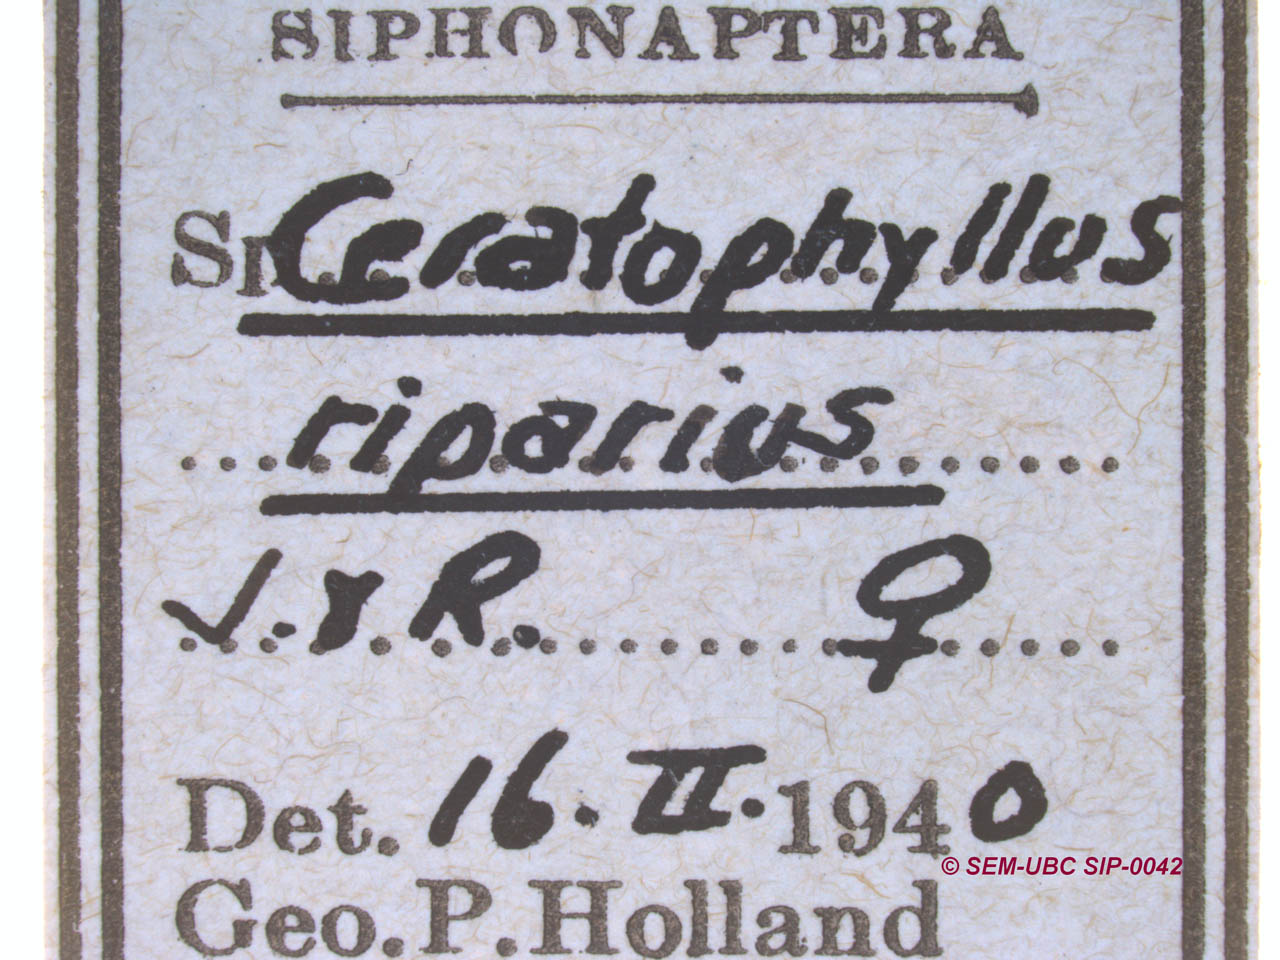 SIPHONAPTERA
Sp. Ceratophyllus
riparius
J. & R. ♀
Det. 16. II. 1940
© SEM-UBC SIP-0042
Geo. P. Holland